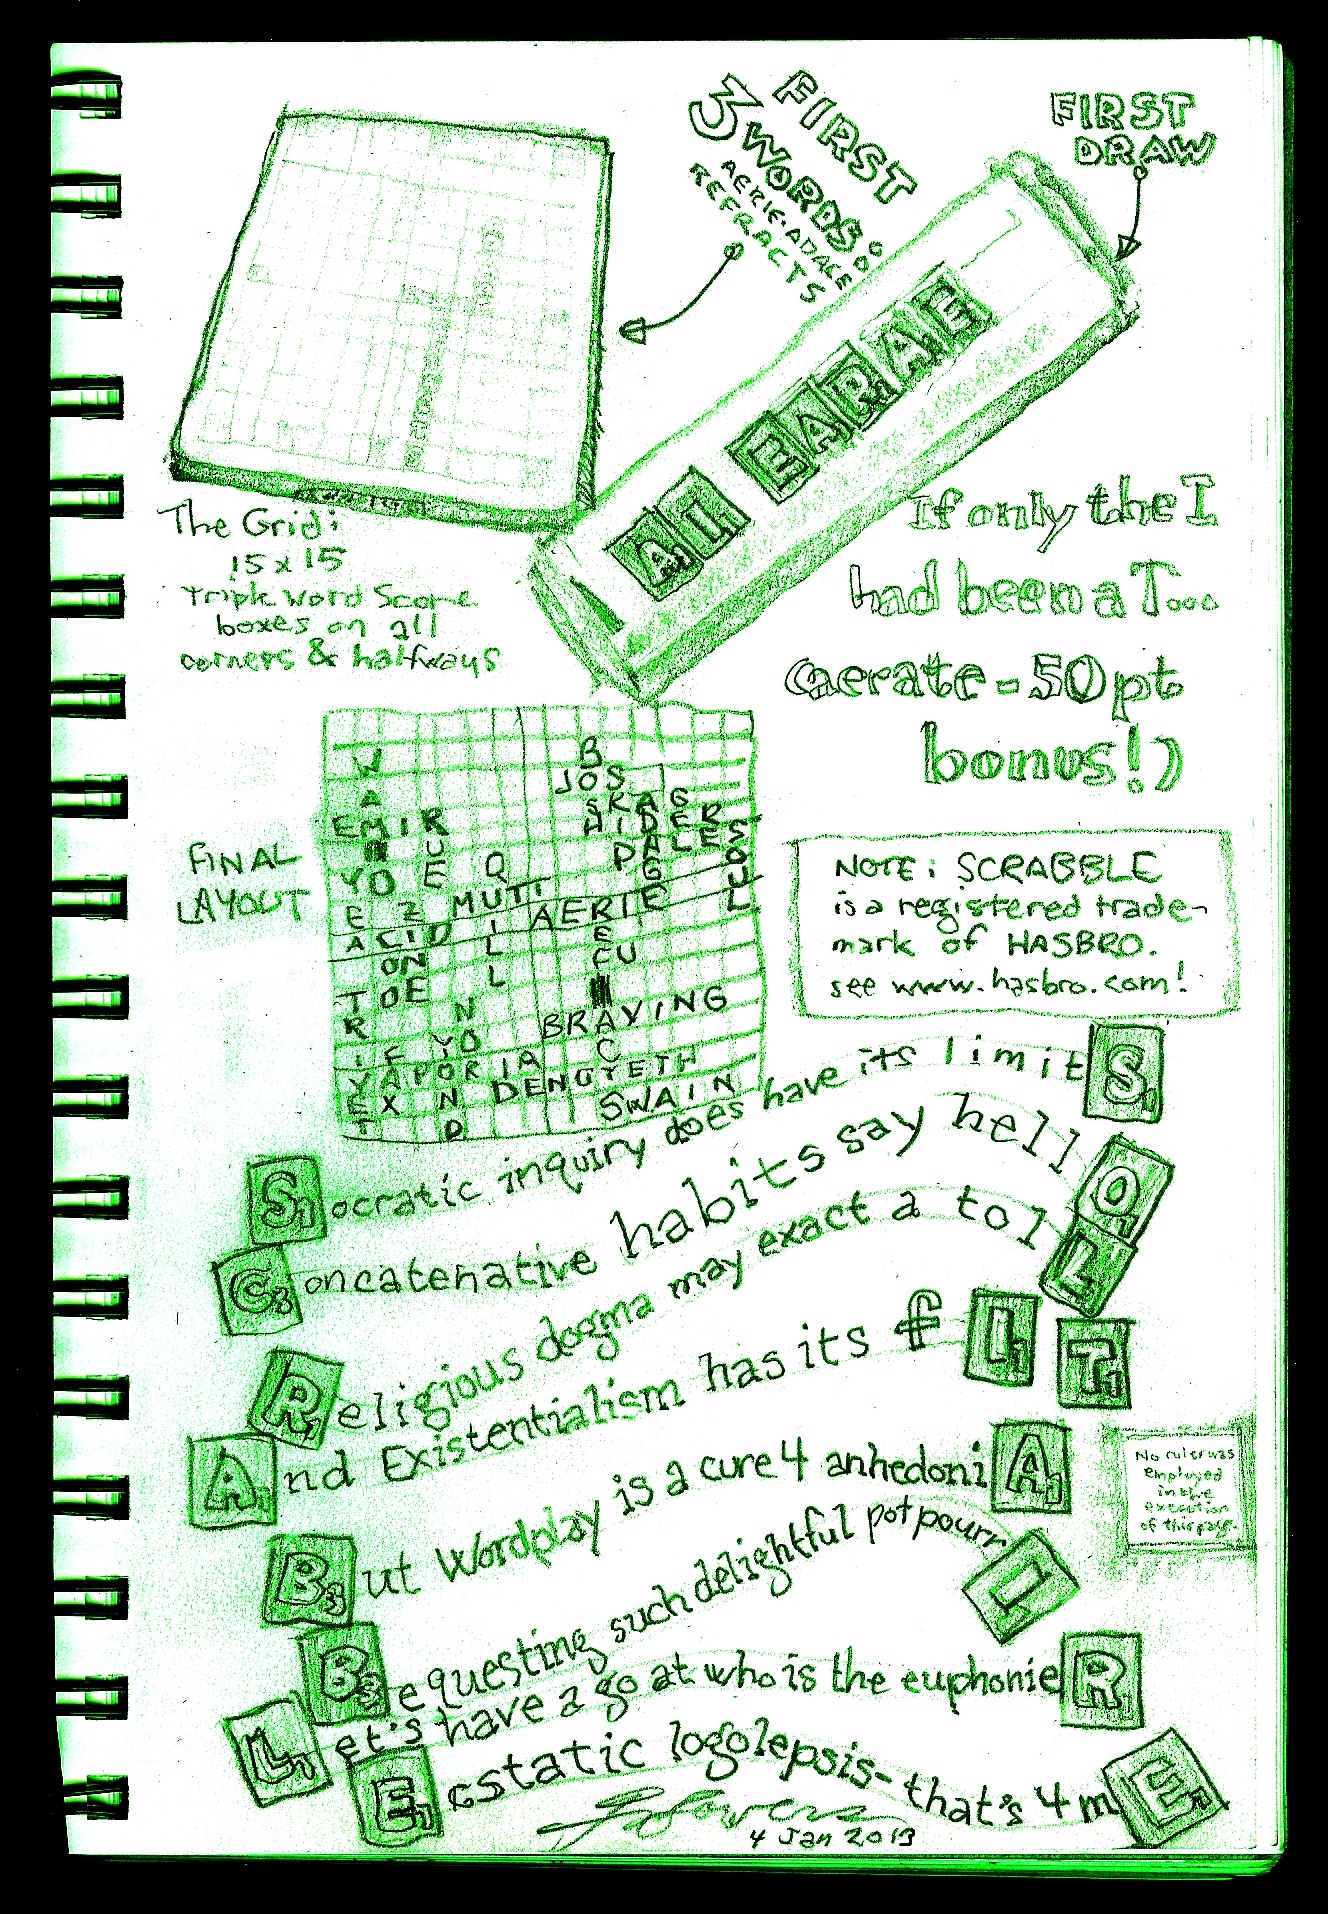 FIRST
3 WORDS:
AERIE·ADAGE
REFRACTS
FIRST
DRAW
AI EARAE
The Grid:
15 x 15
Triple Word Score
boxes on all
corners & halfways
If only the I
had been a T...
(aerate = 50 pt
bonus!)
FINAL
LAYOUT
W
B
JOS
SRAG
EMIR
HIDER
YO
MUTT
AERIE
ACID
ON
FU
TOE
BRAVING
VAPORIA
DENOTETH
EX
SWAIN
SOUL
NOTE: SCRABBLE
is a registered trade-
mark of HASBRO.
see www.hasbro.com!
Socratic inquiry does have its limitS1
C3oncatenative habits say hellO1
R1eligious dogma may exact a tolL
A1nd Existentialism has its f L1 T1
B3ut Wordplay is a cure 4 anhedoniA1
B3equesting such delightful potpourrI
L1et's have a go at who is the euphonieR1
E1cstatic logolepsis- that's 4 mE
No ruler was
employed
in the
execution
of this page.
4 Jan 2013